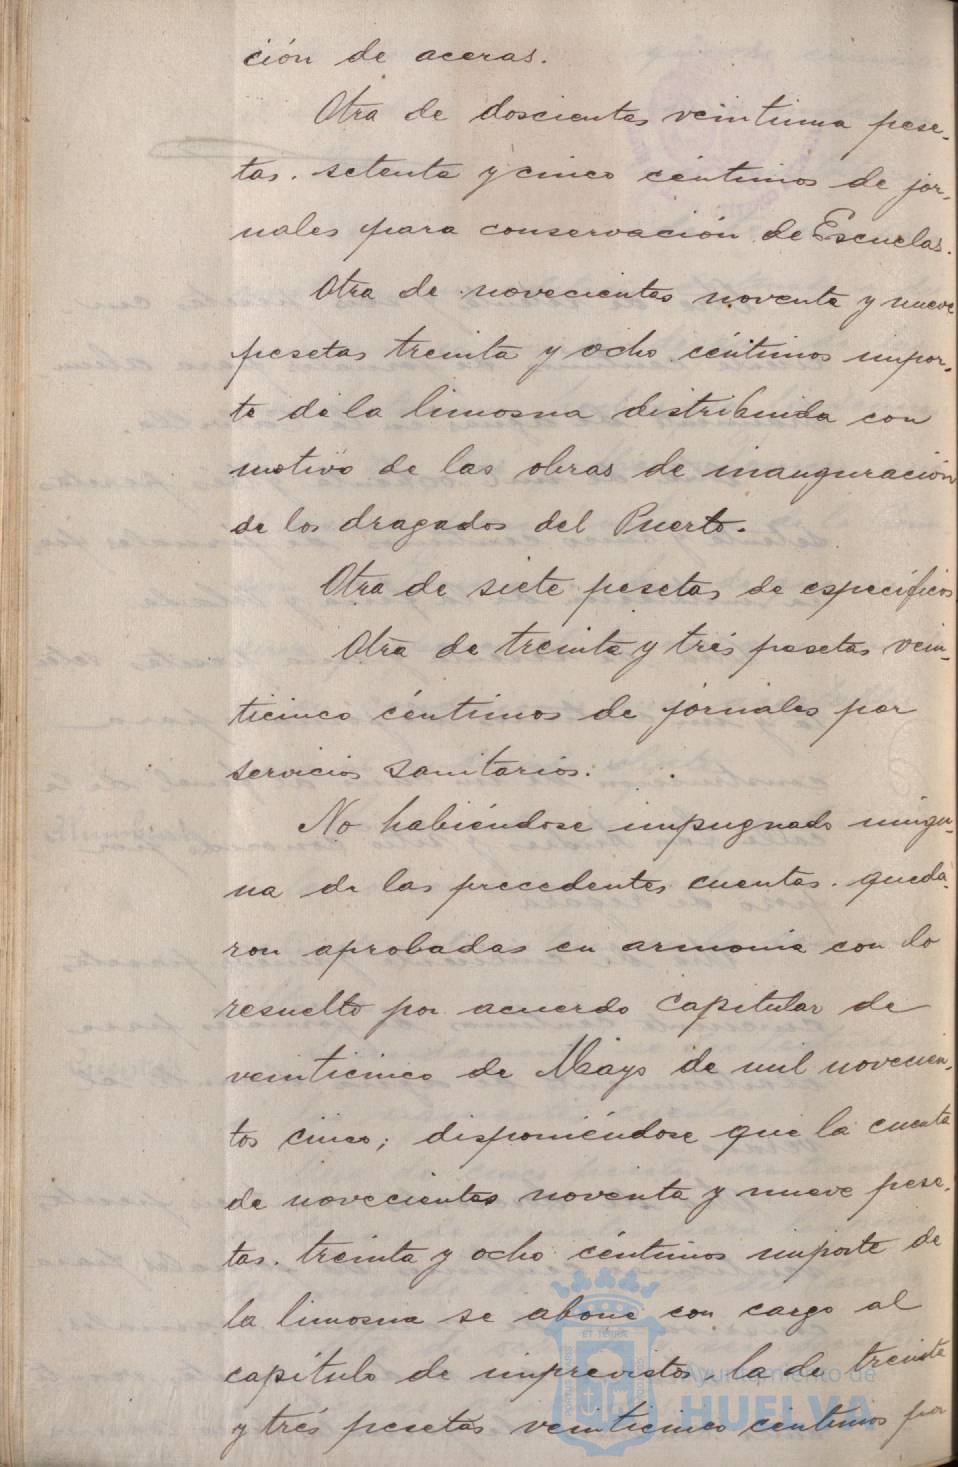 ción de aceras.
Otra de doscientas veintiuna pese-
tas. setenta y cinco céntimos de jor-
nales para conservación de Escuelas.
Otra de novecientas noventa y nueve
pesetas treinta y ocho céntimos impor-
te de la limosna distribuida con
motivo de las obras de inauguración
de los dragados del Puerto.
Otra de siete pesetas de específicos
Otra de treinta y trés pesetas vein-
ticinco céntimos de jornales por
servicios sanitarios.
No habiéndose impugnado ningu-
na de las precedentes cuentas. queda-
ron aprobadas en armonia con lo
resuelto por acuerdo Capitular de
veinticinco de Mayo de mil novecien-
tos cinco; disponiéndose que la cuenta
de novecientas noventa y nueve pese-
tas. treinta y ocho céntimos importe de
la limosna se abone con cargo al
capítulo de imprevistos, la de treinta
y trés pesetas veinticinco céntimos por
Ayuntamiento de
HUELVA